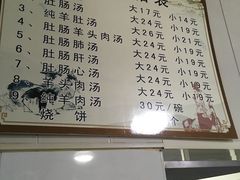 肚肠汤 大17元 小14元
3、纯羊肚汤 大24元 小19元
4、肚肠羊头肉汤 大24元 小19元
5、肚肠肺汤 大26元 小21元
6、肚肠肝汤 大24元 小19元
7、肚肠心汤 大24元 小19元
8、羊头肉汤 大24元 小19元
9、纯羊肉汤 30元/碗
烧饼 个